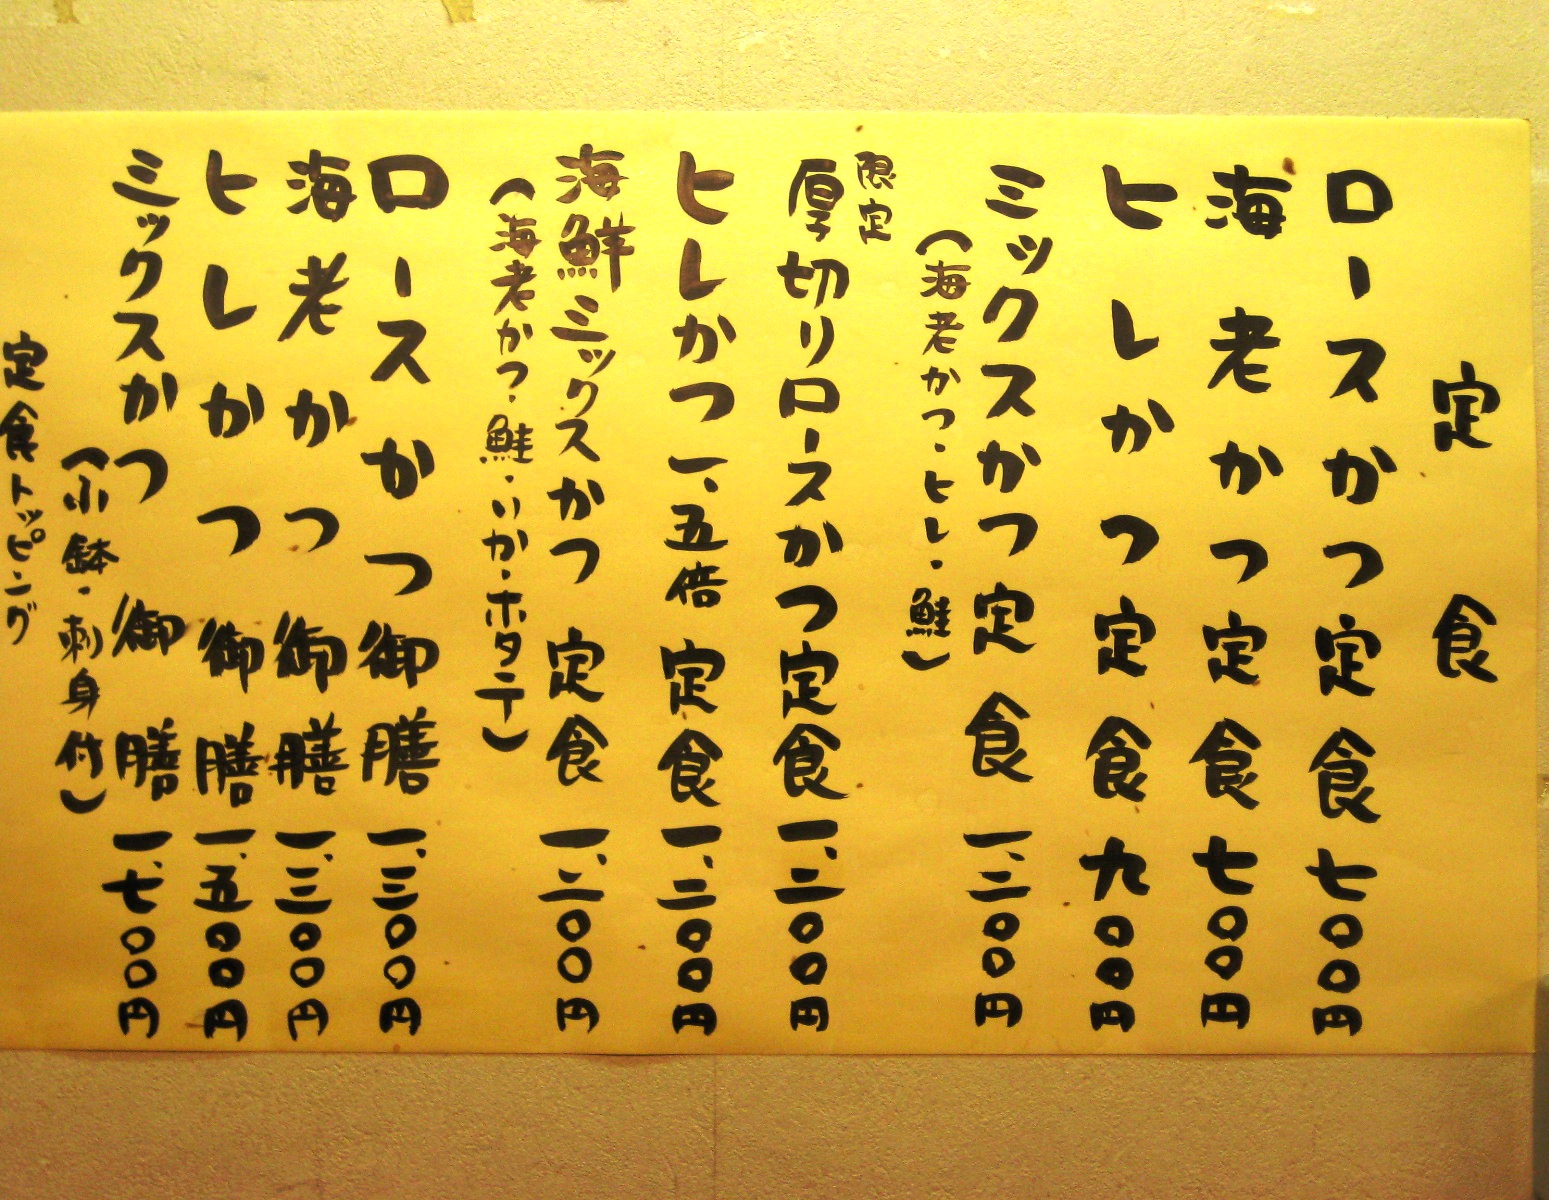 定食
ロースかつ定食 七〇〇円
海老かつ定食 七〇〇円
ヒレかつ定食 九〇〇円
ミックスかつ定食 一、二〇〇円
（海老かつ・ヒレ・鮭）
限定
厚切りロースかつ定食 一、二〇〇円
ヒレかつ一、五倍定食 一、二〇〇円
海鮮ミックスかつ定食 一、二〇〇円
（海老かつ・鮭・いか・ホタテ）
ロースかつ御膳 一、三〇〇円
海老かつ御膳 一、三〇〇円
ヒレかつ御膳 一、五〇〇円
ミックスかつ御膳 一、七〇〇円
（小鉢・刺身付）
定食トッピング